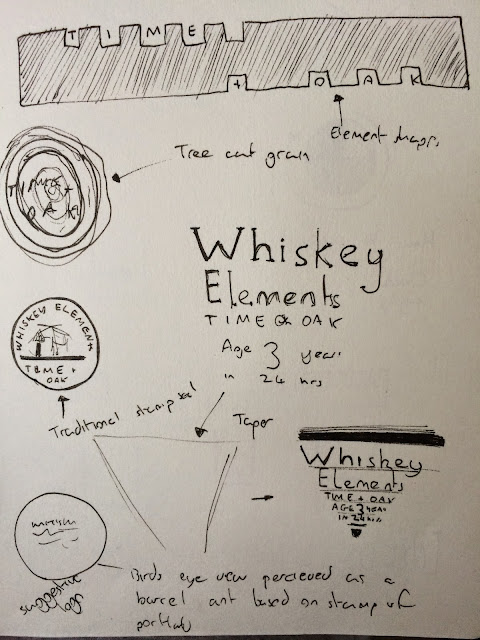 TIME
+ OAK
Element shapes
Tree cut grain
TIME +
OAK
Whiskey
Elements
TIME & OAK
Age 3 years
in 24 hrs
WHISKEY ELEMENT
TIME +
OAK
Traditional stamp seal
Taper
Whiskey
Elements
TIME + OAK
AGE 3 YEAR
IN 24 hrs
suggestive
logo
Birds eye view percieved as a
barrel ant based on stamp of